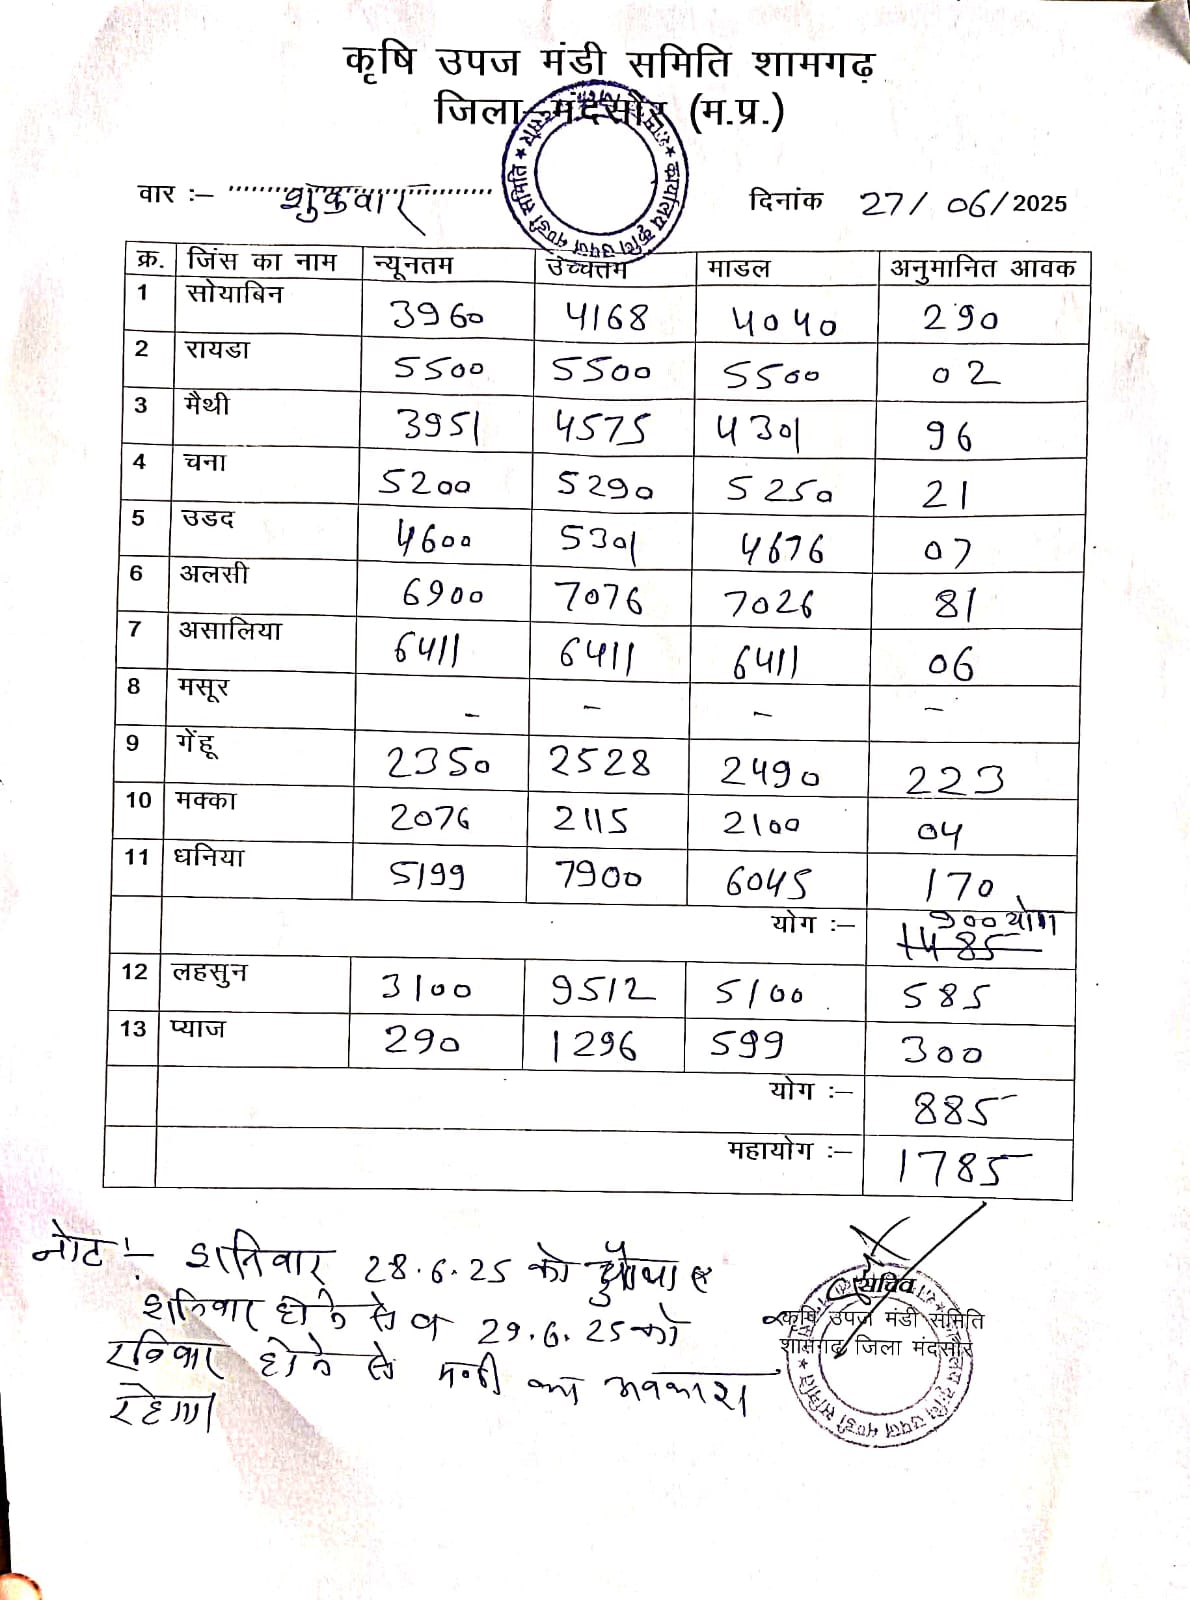 कृषि उपज मंडी समिति शामगढ़
जिला मंदसौर (म.प्र.)
वार :– शुक्रवार दिनांक 27/06/2025
क्र. जिंस का नाम न्यूनतम उच्चत्तम माडल अनुमानित आवक
1 सोयाबिन 3960 4168 4040 290
2 रायडा 5500 5500 5500 02
3 मैथी 3951 4575 4301 96
4 चना 5200 5290 5250 21
5 उडद 4600 5301 4676 07
6 अलसी 6900 7076 7026 81
7 असालिया 6411 6411 6411 06
8 मसूर - - - -
9 गेंहू 2350 2528 2490 223
10 मक्का 2076 2115 2100 04
11 धनिया 5199 7900 6045 170
योग :– 900 योग
12 लहसुन 3100 9512 5100 585
13 प्याज 290 1296 599 300
योग :– 885
महायोग :– 1785
नोट :- शनिवार 28.6.25 को
शनिवार होने से व 29.6.25 को
रविवार होने से मण्डी का अवकाश
रहेगा
सचिव
कृषि उपज मंडी समिति
शामगढ़ जिला मंदसौर